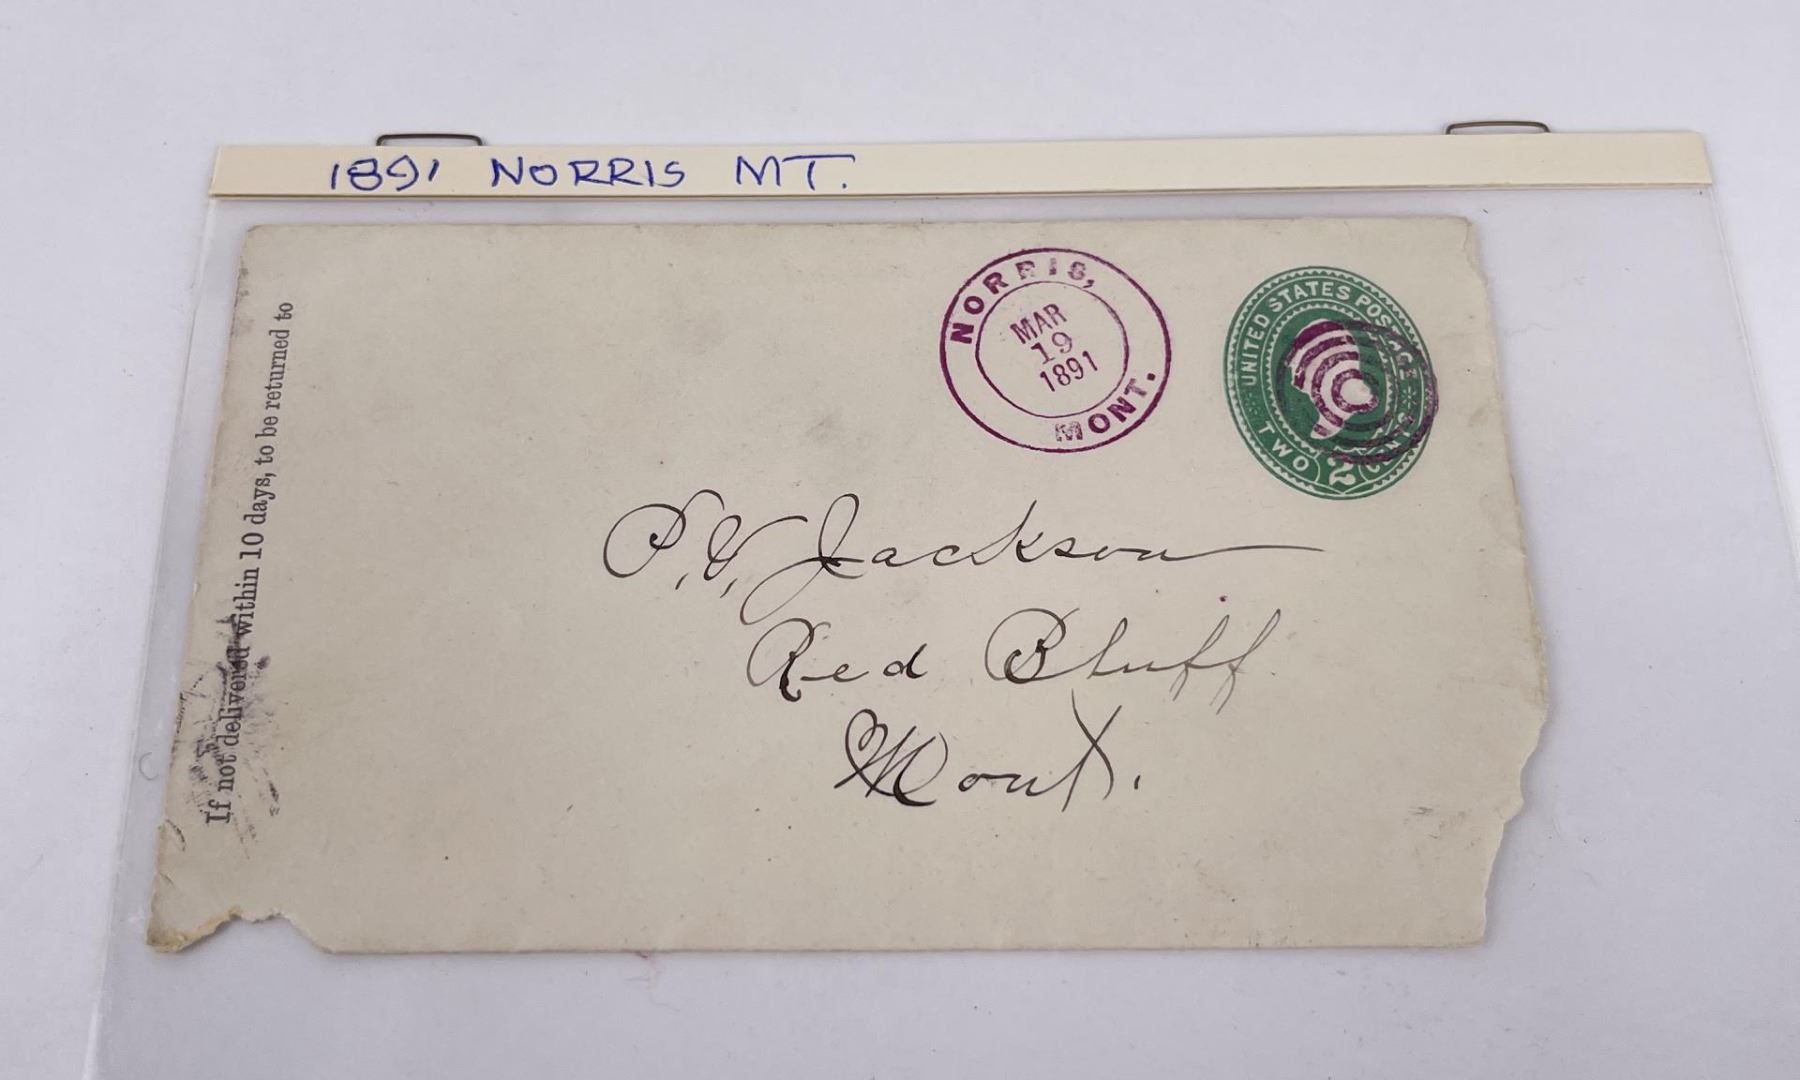 1891 NORRIS MT.
NORRIS,
MAR
19
1891
MONT.
UNITED STATES POSTAGE
TWO 2 CENTS
If not delivered within 10 days, to be returned to
P. V. Jackson
Red Bluff
Mont.